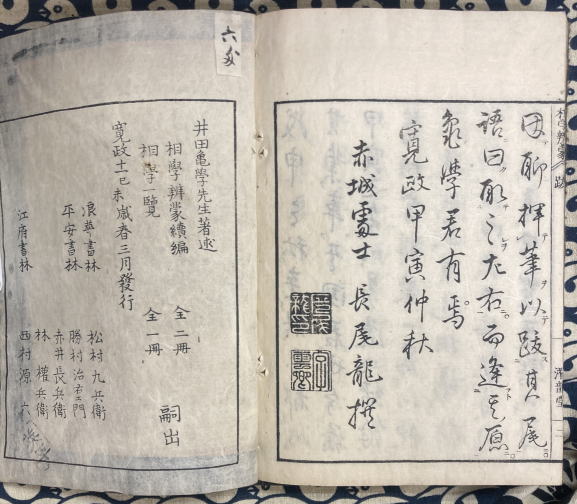 因聊揮筆以跋其尾
語曰取之左右而逢其原
龜學君有焉
寛政甲寅仲秋
赤城處士 長尾龍撰
井田亀學先生著述
相學辨蒙續編 全二冊
相學一覧 全一冊
嗣出
寛政十一己未歳春三月發行
浪華書林 松村九兵衛
平安書林 勝村治右衛門
赤井長兵衛
林權兵衛
江府書林 西村源六